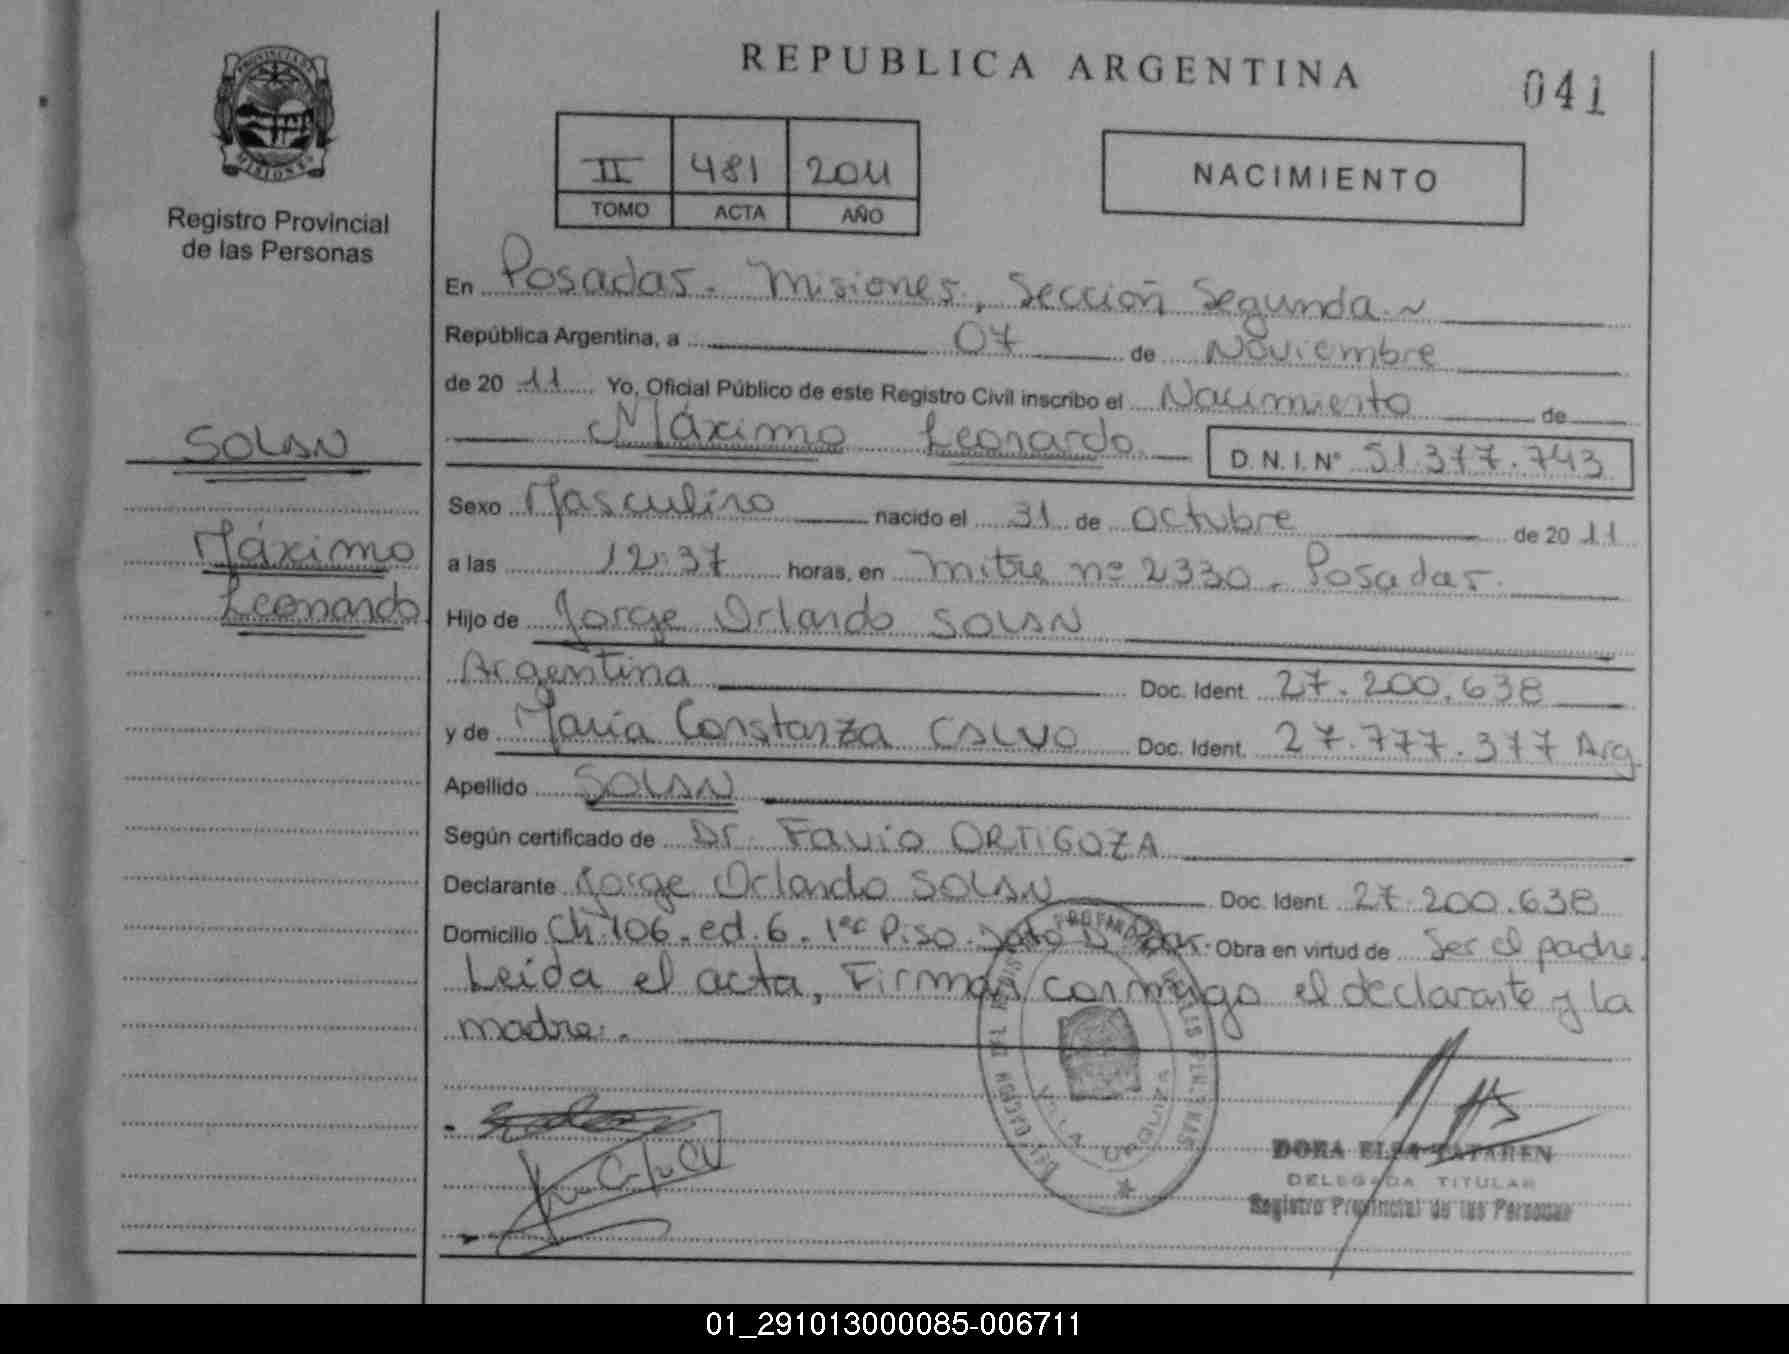 PROVINCIA DE
MISIONES
Registro Provincial
de las Personas
SOLAN
Máximo
Leonardo
REPUBLICA ARGENTINA
041
II 481 2011
TOMO ACTA AÑO
NACIMIENTO
En Posadas. Misiones, Sección Segunda.~
República Argentina, a 07 de Noviembre
de 2011 Yo, Oficial Público de este Registro Civil inscribo el Nacimiento de
Máximo Leonardo D.N.I.Nº 51.377.743
Sexo Masculino nacido el 31 de octubre de 2011
a las 12:37 horas, en Mitre nº 2330. Posadas.
Hijo de Jorge Orlando SOLAN
Argentina Doc. Ident. 27.200.638
y de María Constanza CALVO Doc. Ident. 27.777.377 Arg
Apellido SOLAN
Según certificado de Dr. Favio ORTIGOZA
Declarante Jorge Orlando SOLAN Doc. Ident. 27.200.638
Domicilio Ch. 106. ed. 6. 1er Piso. Obra en virtud de Ser el padre.
Leída el acta, Firman conmigo el declarante y la
madre.
DORA ELSA TATAREN
DELEGADA TITULAR
Registro Provincial de las Personas
01_291013000085-006711